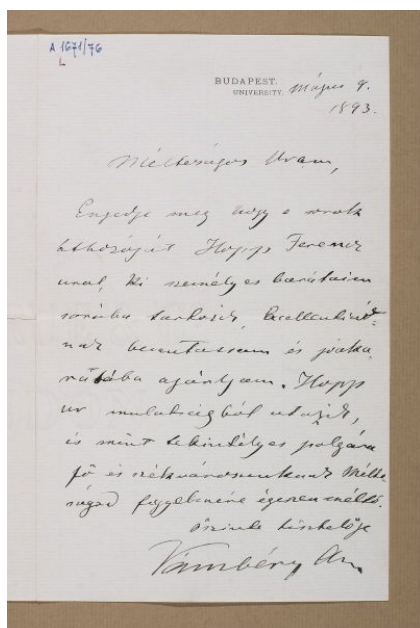 A 1671/76
L
BUDAPEST. Május 9.
UNIVERSITY.
1893.
Méltóságos Uram,
Engedje meg hogy e sorok
Hopp Ferencz
urat, ki személyes barátaim
sorába tartozik, Excellentiád-
nak bemutassam és jóaka-
ratába ajánljam. Hopp
ur mulatságból utazik,
és mint tekintélyes polgára
fő és székvárosunknak Mélt-
ságod figyelmére egészen méltó.
őszinte tisztelője
Vámbéry Ar.